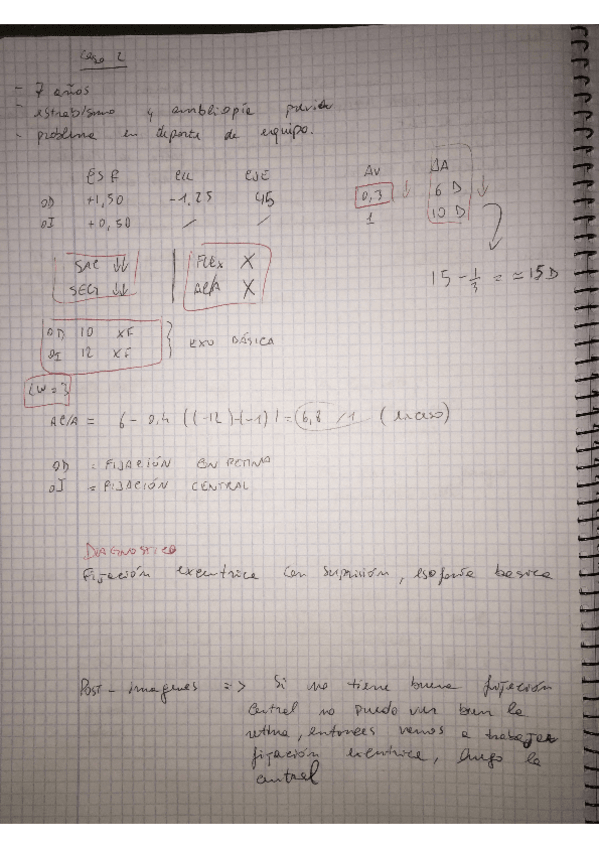 Caso 2
- 7 años
- estrabismo y ambliopía previa
- problema en deporte de equipo.
ESF CIL EJE AV AA
OD +1,50 -1.25 45 0,3 ↓ 6 D ↓
OI +0,50 / / 1 10 D
15 - 1/3 = ≃ 15 D
SAC ↓↓ FLEX X
SEG ↓↓ AC/A X
OD 10 XF
OI 12 XF } EXO BÁSICA
AC/A = 6 - 0,4 ((-12)-(-1)) = 6,8 /1
OD = FIJACIÓN EN RETINA
OI = FIJACIÓN CENTRAL
DIAGNOSTICO
Fijación excentrica con supresión, esoforia basica
Post-imagenes => Si no tiene buena fijación
central no puede ver bien la
retina, entonces vamos a trabajar
fijación excentrica, luego la
central